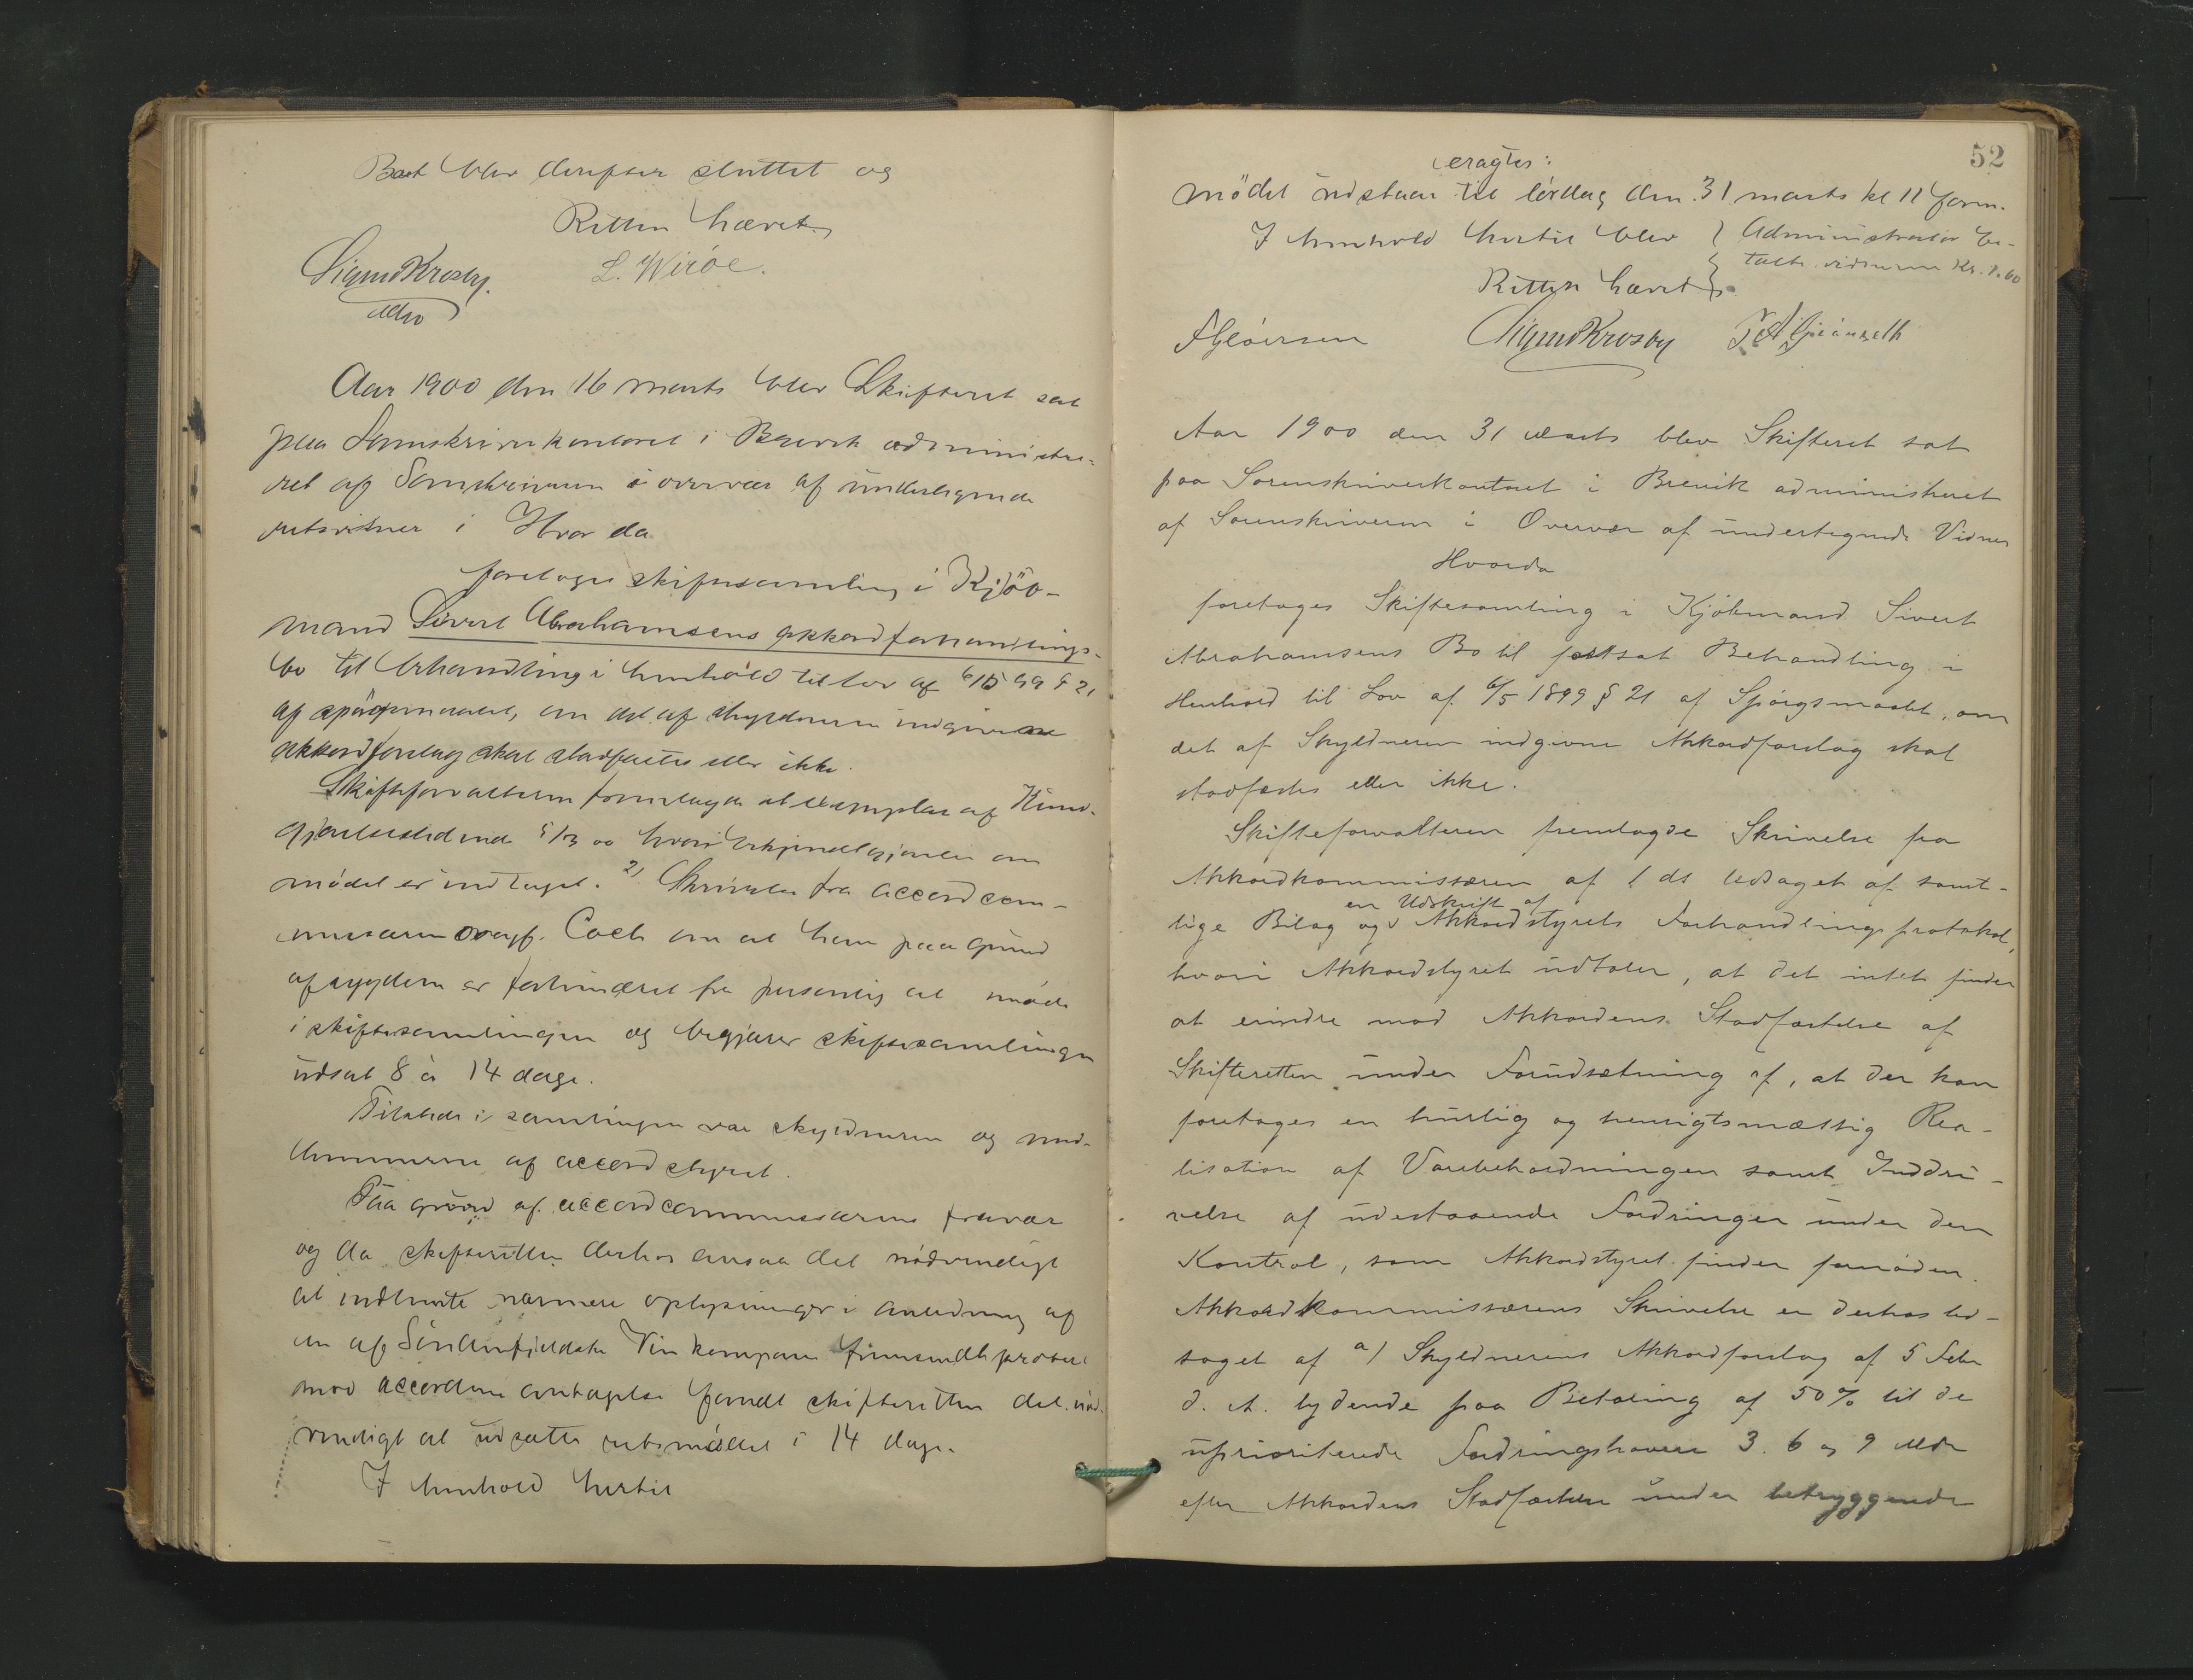 Boet blev derefter sluttet og
Retten hævet
Sigurd Krosby.
L. Wiröe.
adv
Aar 1900 den 16 marts blev Skifteret sat
paa Sorenskriverkontoret i Brevik administre-
ret af Sorenskriveren i overvær af undertegnede
retsvidner i Hvor da
foretoges skiftesamling i Kjöb-
mand Sivert Abrahamsens akkordforhandlings-
bo til behandling i henhold til lov af 6/5 99 § 21
af spörgsmaalet, om det af skyldneren indgivne
akkordforslag skal stadfæstes eller ikke.
Skifteforvalteren fremlagde et exemplar af Kund-
gjörelsestidende 5/3 00 hvori bekjendtgjörelse om
mödet er indtaget. 2) Skrivelse fra accordcom-
missæren ovrsf. Coch om at han paa grund
af sygdom er forhindret fra personlig at möde
i skiftesamlingen og begjærer skiftesamlingen
udsat 8 à 14 dage.
Tilstede i samlingen var skyldneren og med-
lemmerne af accordstyret.
Paa grund af accordcommissærens fravær
og da skifteretten derhos ansaa det nödvendigt
at indhente nærmere oplysninger i anledning af
en af Söndenfjeldske Vinkompani fremsendt protest
mod accordens antagelse fandt skifteretten det nöd-
vendigt at udsætte retsmödet i 14 dage.
I henhold hertil
52
eragtes:
Mödet udstaar til lördag den 31 marts kl 11 form.
I henhold hertil blev } Administrator be-
talte vidnerne Kr. 1.60
Retten hævet
Sigurd Krosby
Aar 1900 den 31 marts blev Skifteret sat
paa Sorenskriverkontoret i Brevik administreret
af Sorenskriveren i Overvær af undertegnede Vidner
Hvorda
foretoges Skiftesamling i Kjöbmand Sivert
Abrahamsens Bo til fortsat Behandling i
Henhold til Lov af 6/5 1899 § 21 af Spörgsmaalet, om
det af Skyldneren indgivne Akkordforslag skal
stadfæstes eller ikke.
Skifteforvalteren fremlagde Skrivelse fra
Akkordkommissæren af 1 ds ledsaget af samt-
en Udskrift af
lige Bilag og Akkordstyrets Forhandlingsprotokol,
hvori Akkordstyret udtaler, at det intet finder
at erindre mod Akkordens Stadfæstelse af
Skifteretten under Forudsætning af, at der kan
foretages en hurtig og hensigtsmæssig Rea-
lisation af Varebeholdningen samt Inddri-
velse af udestaaende Fordringer under den
Kontrol, som Akkordstyret finder fornöden.
Akkordkommissærens Skrivelse er derhos led-
saget af a) Skyldnerens Akkordforslag af 5 Febr
d. A. lydende paa Betaling af 50 % til de
uprioriterede Fordringshavere 3. 6 og 9 Mdr
efter Akkordens Stadfæstelse under betryggende